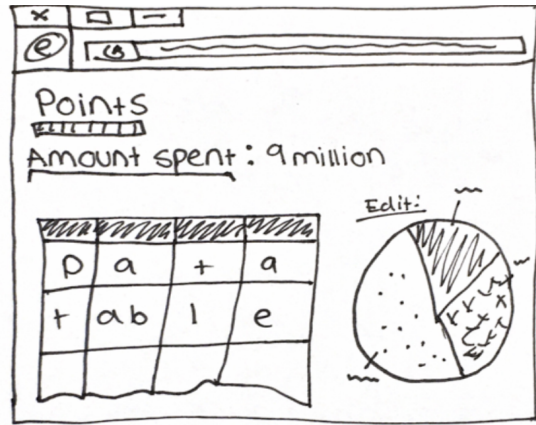 e
Points
Amount spent: 9 million
Edit:
D a t a
t ab l e